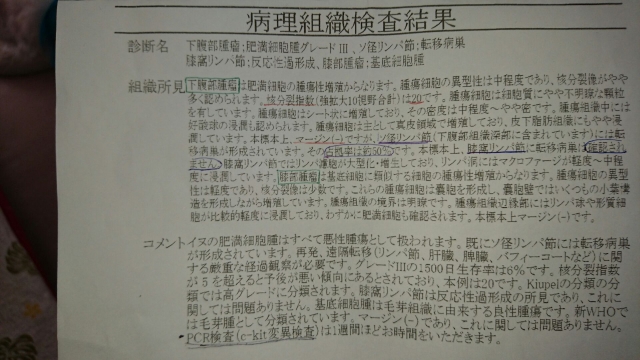 病理組織検査結果
診断名 下腹部腫瘤;肥満細胞腫グレードⅢ、ソ径リンパ節;転移病巣
膝窩リンパ節;反応性過形成、膝部腫瘤;基底細胞腫
組織所見 下腹部腫瘤は肥満細胞の腫瘍性増殖からなります。腫瘍細胞の異型性は中程度であり、核分裂像がやや
多く認められます。核分裂指数(強拡大10視野合計)は20です。腫瘍細胞は細胞質にやや不明瞭な顆粒
を有しています。腫瘍細胞はシート状に増殖しており、その密度は中程度~やや密です。腫瘍組織中には
好酸球の浸潤も認められます。腫瘍細胞は主として真皮領域で増殖しており、皮下脂肪組織にもやや浸
潤しています。本標本上、マージン(-)ですが、ソ径リンパ節(下腹部組織深部に含まれています)には転
移病巣が形成されています。その占拠率は約50%です。本標本上、膝窩リンパ節に転移病巣は確認され
ません。膝窩リンパ節ではリンパ濾胞が大型化・増生しており、リンパ洞にはマクロファージが軽度~中程
度に浸潤しています。膝部腫瘤は基底細胞に類似する細胞の腫瘍性増殖からなります。腫瘍細胞の異型
性は軽度であり、核分裂像は少数です。これらの腫瘍細胞は嚢胞を形成し、嚢胞壁ではいくつもの小葉構
造を形成しながら増殖しています。腫瘍組織の境界は明瞭です。腫瘍組織辺縁部にはリンパ球や形質細
胞が比較的軽度に浸潤しており、わずかに肥満細胞も確認されます。本標本上マージン(-)です。
コメント イヌの肥満細胞腫はすべて悪性腫瘍として扱われます。既にソ径リンパ節には転移病巣
が形成されています。再発、遠隔転移(リンパ節、肝臓、脾臓、バフィーコートなど)に関
する厳重な経過観察が必要です。グレードⅢの1500日生存率は6%です。核分裂指数
が5を超えると予後が悪い傾向にあるとされており、本例は20です。Kiupelの分類の分
類では高グレードに分類されます。膝窩リンパ節は反応性過形成の所見であり、これに
関しては問題ありません。基底細胞腫は毛芽組織に由来する良性腫瘍です。新WHO
では毛芽腫として分類されています。マージン(-)であり、これに関しては問題ありません。
PCR検査(c-kit変異検査)は1週間ほどお時間をいただきます。